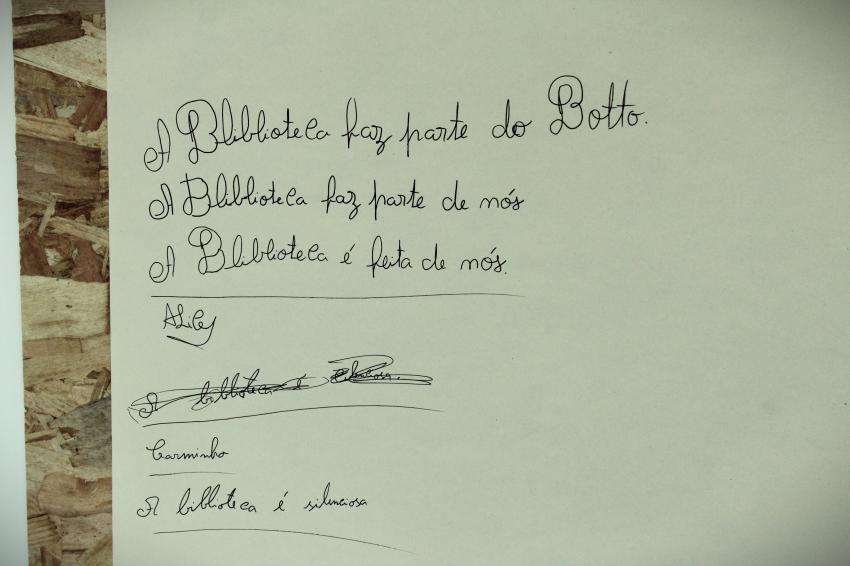 A Bliblioteca faz parte do Botto.
A Bliblioteca faz parte de nós
A Bliblioteca é feita de nós.
A biblloteca é silenciosa.
Carminho
A biblloteca é silenciosa